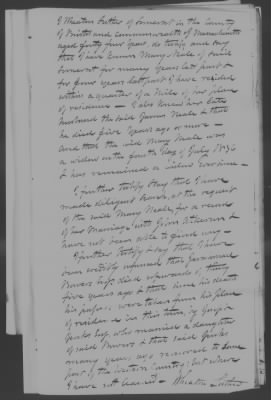 I Wheaton Luther of Somerset in the County
of Bristol and Commonwealth of Massachusetts
aged forty four years do testify and say
that I have known Mary Neale of said
Somerset for many years last past &
for four years last past I have resided
within a quarter of a mile of her place
of residence — I also knew her late
husband the said James Neale & that
he died five years ago or more —
And that the said Mary Neale was
a widow on the fourth day of July 1836
& has remained a widow ever since —
I further testify & say that I have
made diligent search, at the request
of the said Mary Neale, for a record
of her Marriage with
have not been able to find any —
I further testify & say that I have
been credibly informed that
Bowers Esq. died upwards of thirty
five years ago & that since his death
his papers, were taken from his place
of residence in this town, by George
Gibbs Esq. who married a daughter
of said Bowers & that said Gibbs
many years ago removed to some
part of the Western Country; but where
I have not learned — Wheaton Luther